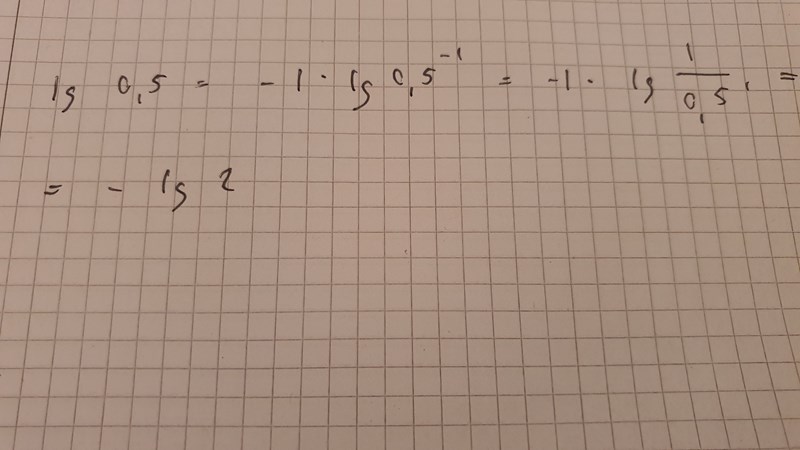 lg 0,5 = -1 · lg 0,5⁻¹ = -1 · lg 1/0,5 =
= - lg 2